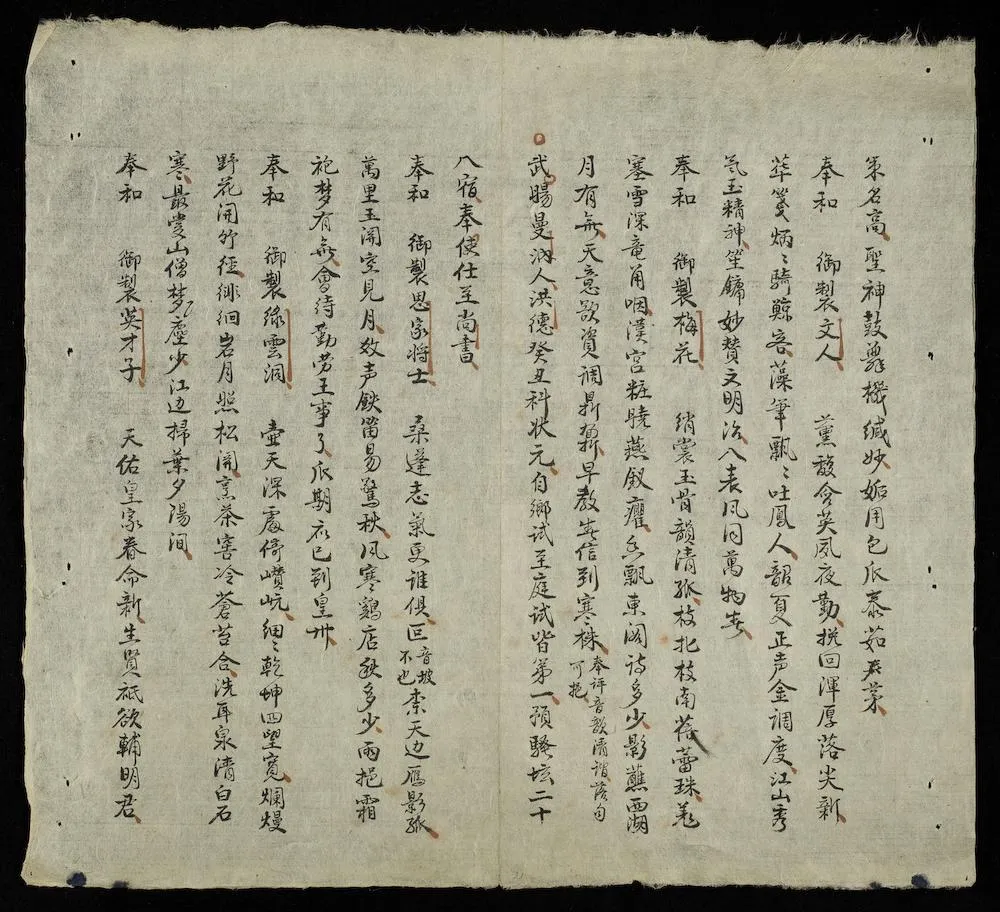 策名高聖神鼓舞機緘妙姤用包瓜泰茹茅
奉和 御製文人 薰馥含英夙夜勤挽回渾厚落尖新
華箋炳〻騎鯨客藻筆飄〻吐鳳人韶夏正声金調度江山秀
気玉精神笙鏞妙賛文明治八表凡同萬物春
奉和 御製梅花 綃裳玉骨韻清孤枝北枝南蓓蕾珠羌
塞雪深竜角咽漢宮粧曉燕釵癯香飄東閣詩多少影蘸西湖
月有無天意欲資調鼎鼐早教春信到寒株奉评音韻清谐落句可挹
武暘曼洳人洪德癸丑科状元自鄉試至庭試皆第一預騷坛二十
八宿奉使仕至尚書
奉和 御製思家将士 桑蓬志氣更谁俱叵音坡不也柰天边鴈影孤
萬里玉開空見月效声鉄笛易驚秋风寒鷄店秋多少雨挹霜
袍梦有無會待勤劳王事了瓜期衣已到皇州
奉和 御製緑雲洞 壷天深處倚巑岏細〻乾坤四望寛爛熳
野花開竹徑徘徊岩月照松開烹茶窖冷蒼苔合洗耳泉清白石
寒最愛山僧梦塵少江边掃葉夕陽间
奉和 御製英才子 天佑皇家眷命新生賢祗欲輔明君